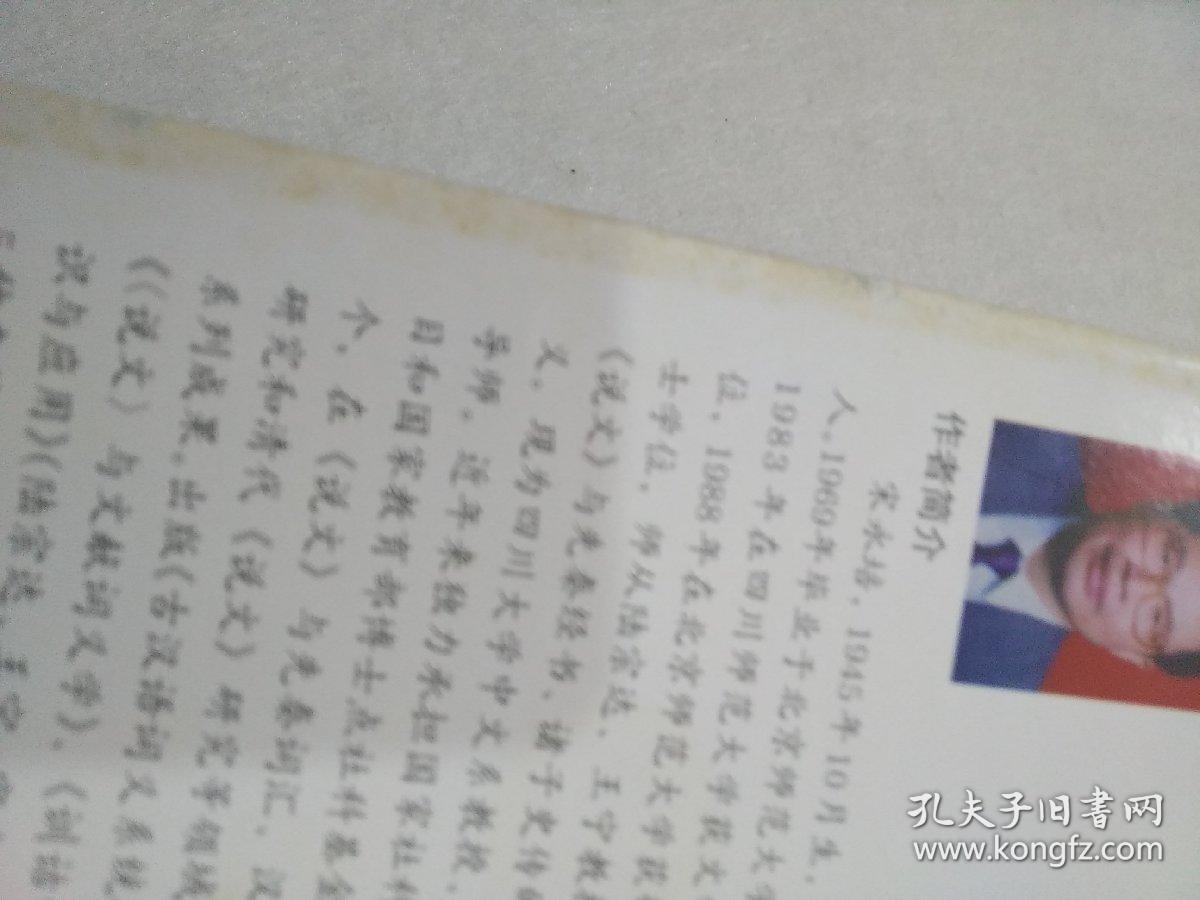 作者简介
宋永培，1945年10月生，
人。1969年毕业于北京师范大学
1983年在四川师范大学获文
位，1988年在北京师范大学获
士学位，师从陆宗达、王宁教
《说文》与先秦经书、诸子史传
义。现为四川大学中文系教授、
导师。近年来独力承担国家社科
目和国家教育部博士点社科基金
个，在《说文》与先秦词汇、汉
研究和清代《说文》研究等领域
系列成果。出版《古汉语词义系统
《〈说文〉与文献词义学》、《训诂
识与应用》《陆宗达
孔夫子旧书网
www.kongfz.com